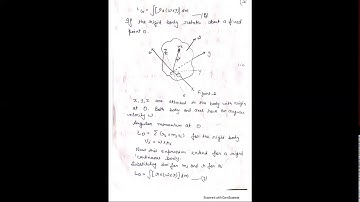 LG = ∫[r×(ω×r)]dm —(8)
If the rigid body rotates about a fixed
point O.
Figure-2
x, y, z are attached to the body with origin
at O. Both body and axes have an angular
velocity ω
Angular momentum at O.
LO = Σ (ri × mi vi) for the rigid body
Vi = ω×ri
Now this expression extent for a rigid
continuous body:
Substituting dm for mi and r for ri
LO = ∫[r×(ω×r)]dm —(9)
Scanned with CamScanner